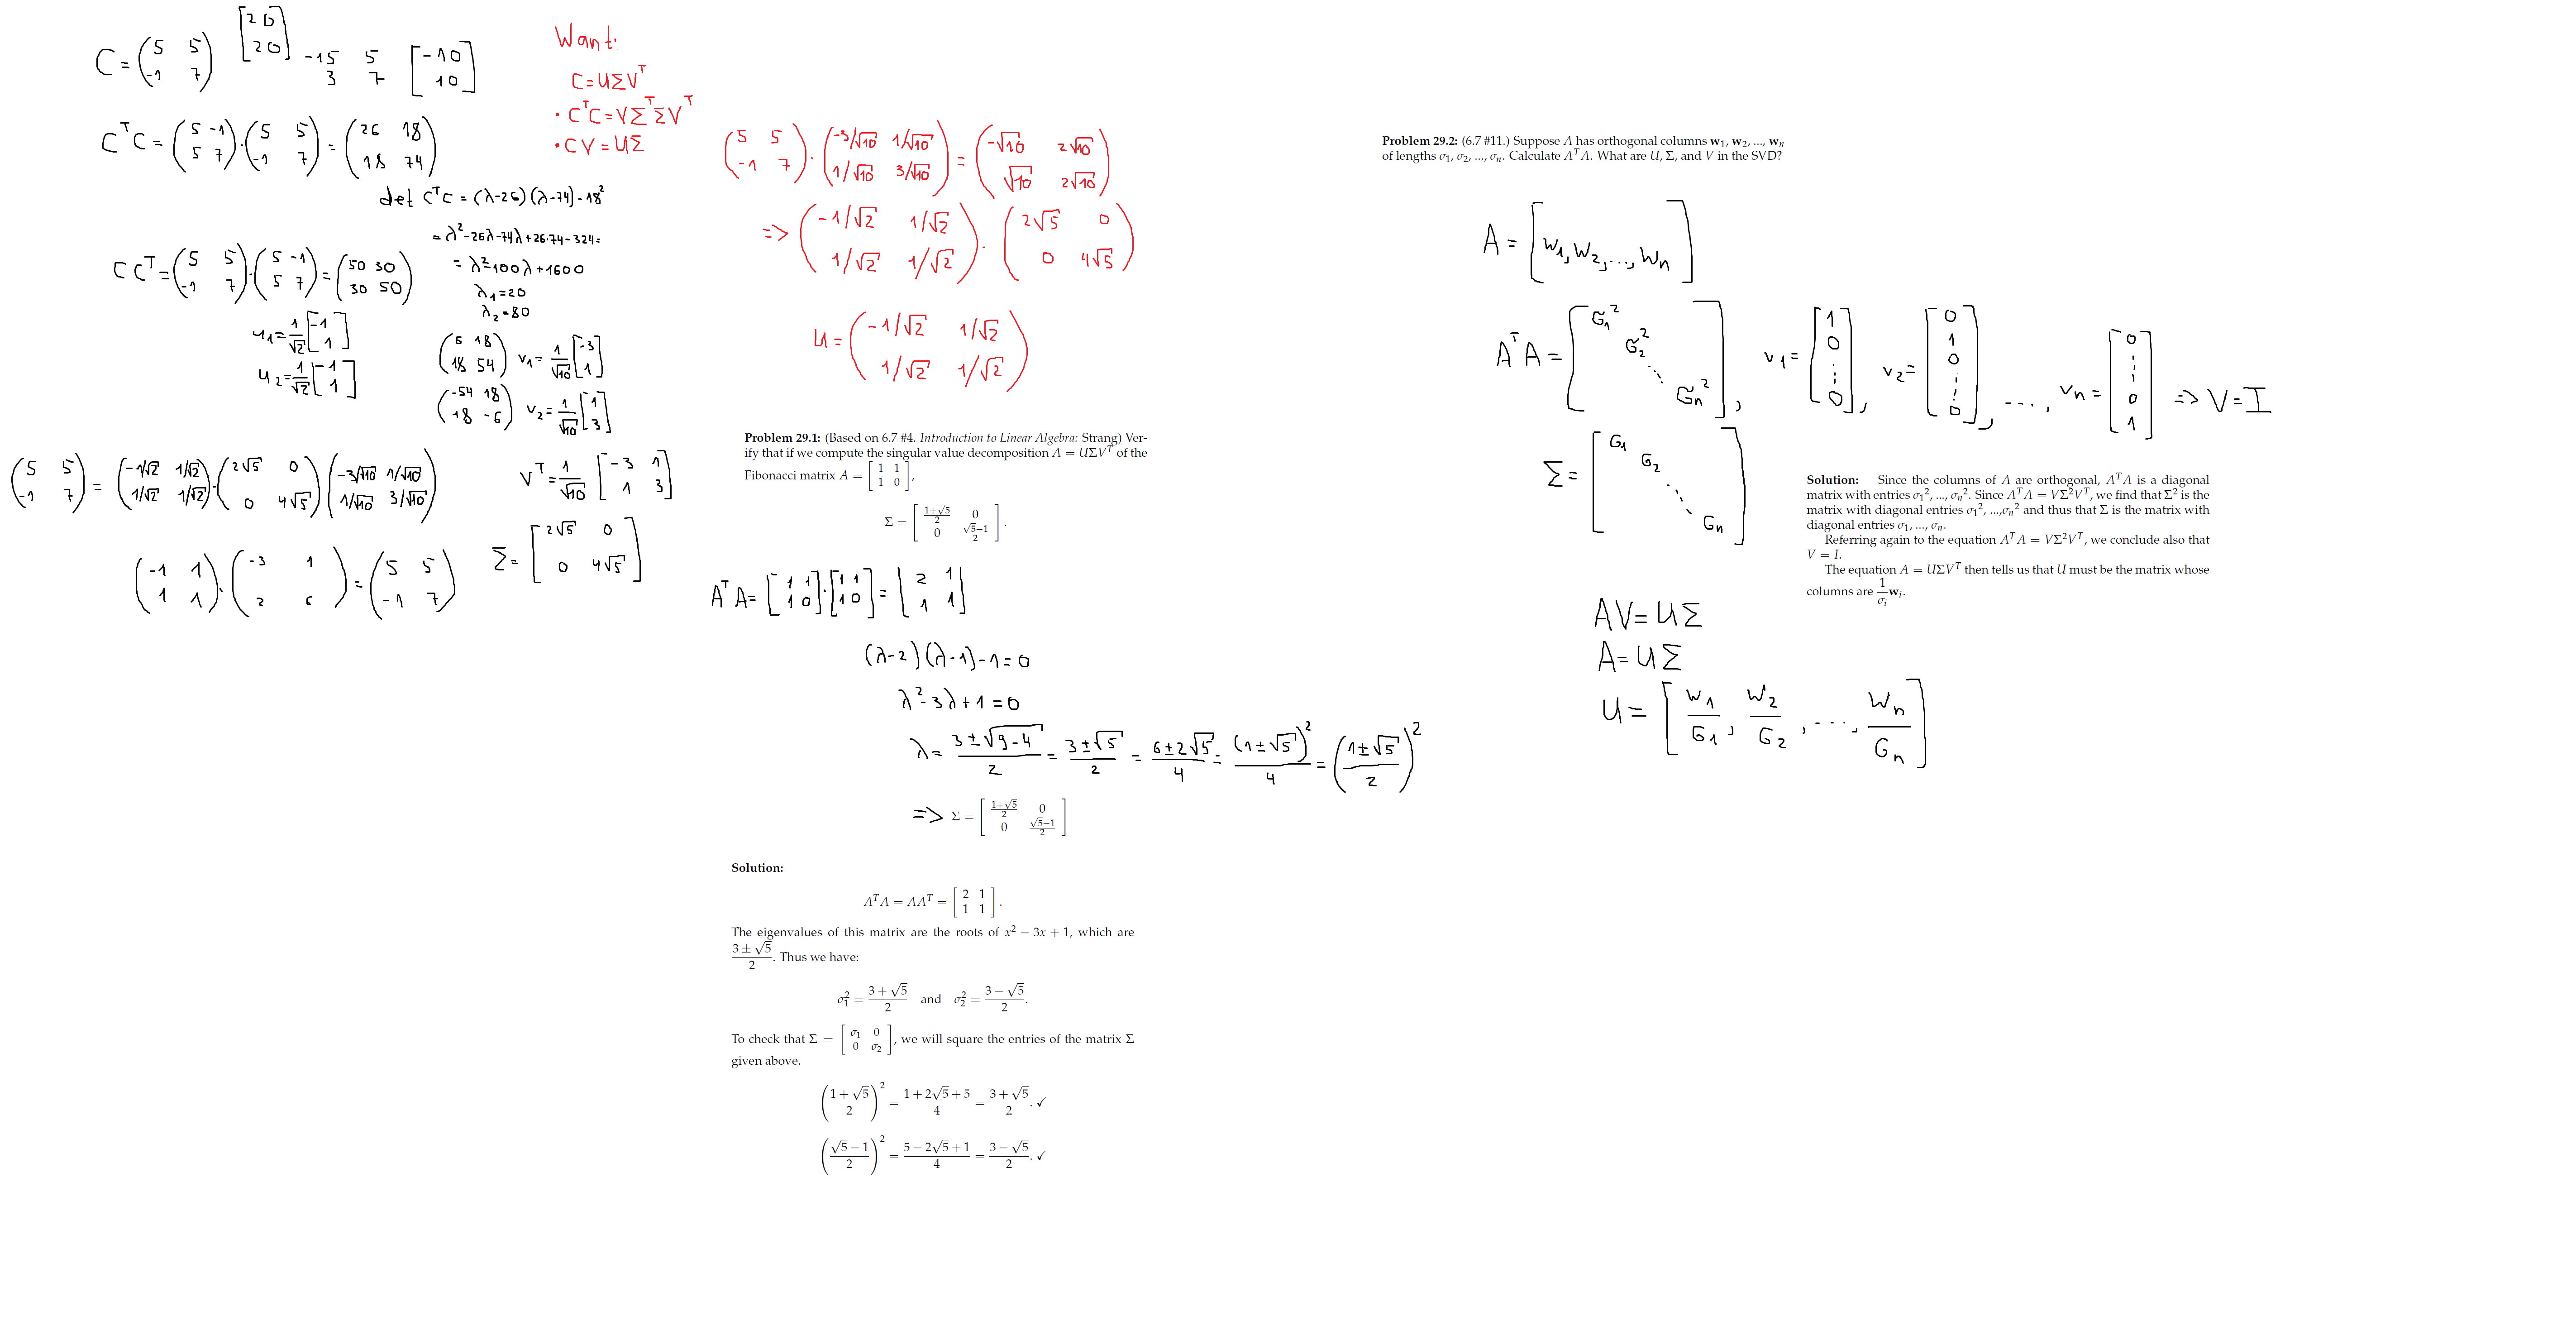 C = (5 5; -1 7) [20; 20] -15 5; 3 7 [-10; 10]
C^T C = (5 -1; 5 7) · (5 5; -1 7) = (26 18; 18 74)
det C^T C = (λ-26)(λ-74) - 18²
= λ² - 26λ - 74λ + 26·74 - 324 =
= λ² - 100λ + 1600
λ₁ = 20
λ₂ = 80
C C^T = (5 5; -1 7) · (5 -1; 5 7) = (50 30; 30 50)
u₁ = 1/√2 [-1; 1]
u₂ = 1/√2 [-1; 1]
(6 18; 18 54) v₁ = 1/√10 [-3; 1]
(-54 18; 18 -6) v₂ = 1/√10 [1; 3]
(5 5; -1 7) = (-1/√2 1/√2; 1/√2 1/√2) · (2√5 0; 0 4√5) (-3/√10 1/√10; 1/√10 3/√10)
V^T = 1/√10 [-3 1; 1 3]
Σ = [2√5 0; 0 4√5]
(-1 1; 1 1) · (-3 1; 2 6) = (5 5; -1 7)
Want:
C = UΣV^T
• C^T C = VΣ^TΣV^T
• CV = UΣ
(5 5; -1 7) · (-3/√10 1/√10; 1/√10 3/√10) = (-√10 2√10; √10 2√10)
=> (-1/√2 1/√2; 1/√2 1/√2) · (2√5 0; 0 4√5)
U = (-1/√2 1/√2; 1/√2 1/√2)
Problem 29.1: (Based on 6.7 #4. Introduction to Linear Algebra: Strang) Ver-
ify that if we compute the singular value decomposition A = UΣV^T of the
Fibonacci matrix A = [1 1; 1 0],
Σ = [(1+√5)/2 0; 0 (√5-1)/2].
A^T A = [1 1; 1 0] · [1 1; 1 0] = [2 1; 1 1]
(λ-2)(λ-1) - 1 = 0
λ² - 3λ + 1 = 0
λ = (3 ± √(9-4))/2 = (3 ± √5)/2 = (6 ± 2√5)/4 = (1 ± √5)²/4 = ((1 ± √5)/2)²
=> Σ = [(1+√5)/2 0; 0 (√5-1)/2]
Solution:
A^T A = AA^T = [2 1; 1 1].
The eigenvalues of this matrix are the roots of x² − 3x + 1, which are
(3 ± √5)/2. Thus we have:
σ₁² = (3 + √5)/2 and σ₂² = (3 − √5)/2.
To check that Σ = [σ₁ 0; 0 σ₂], we will square the entries of the matrix Σ
given above.
((1 + √5)/2)² = (1 + 2√5 + 5)/4 = (3 + √5)/2. ✓
((√5 − 1)/2)² = (5 − 2√5 + 1)/4 = (3 − √5)/2. ✓
Problem 29.2: (6.7 #11.) Suppose A has orthogonal columns w₁, w₂, ..., wₙ
of lengths σ₁, σ₂, ..., σₙ. Calculate A^T A. What are U, Σ, and V in the SVD?
A = [w₁, w₂, ..., wₙ]
A^T A = [σ₁² σ₂² ⋱ σₙ²], v₁ = [1; 0; ⋮; 0], v₂ = [0; 1; 0; ⋮; 0], ..., vₙ = [0; ⋮; 0; 1] => V = I
Σ = [σ₁ σ₂ ⋱ σₙ]
Solution: Since the columns of A are orthogonal, A^T A is a diagonal
matrix with entries σ₁², ..., σₙ². Since A^T A = VΣ²V^T, we find that Σ² is the
matrix with diagonal entries σ₁², ...,σₙ² and thus that Σ is the matrix with
diagonal entries σ₁, ..., σₙ.
Referring again to the equation A^T A = VΣ²V^T, we conclude also that
V = I.
The equation A = UΣV^T then tells us that U must be the matrix whose
columns are (1/σᵢ) wᵢ.
AV = UΣ
A = UΣ
U = [w₁/σ₁, w₂/σ₂, ..., wₙ/σₙ]